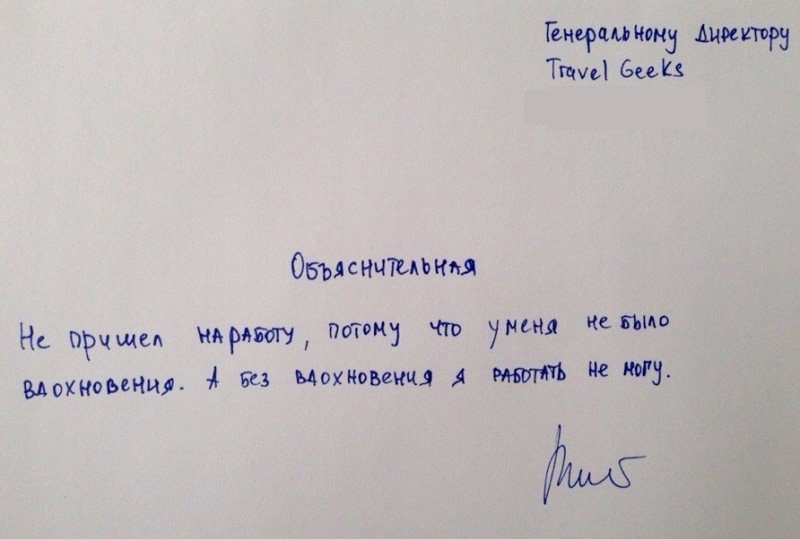 Генеральному Директору
Travel Geeks
Объяснительная
Не пришел на работу, потому что у меня не было
вдохновения. А без вдохновения я работать не могу.